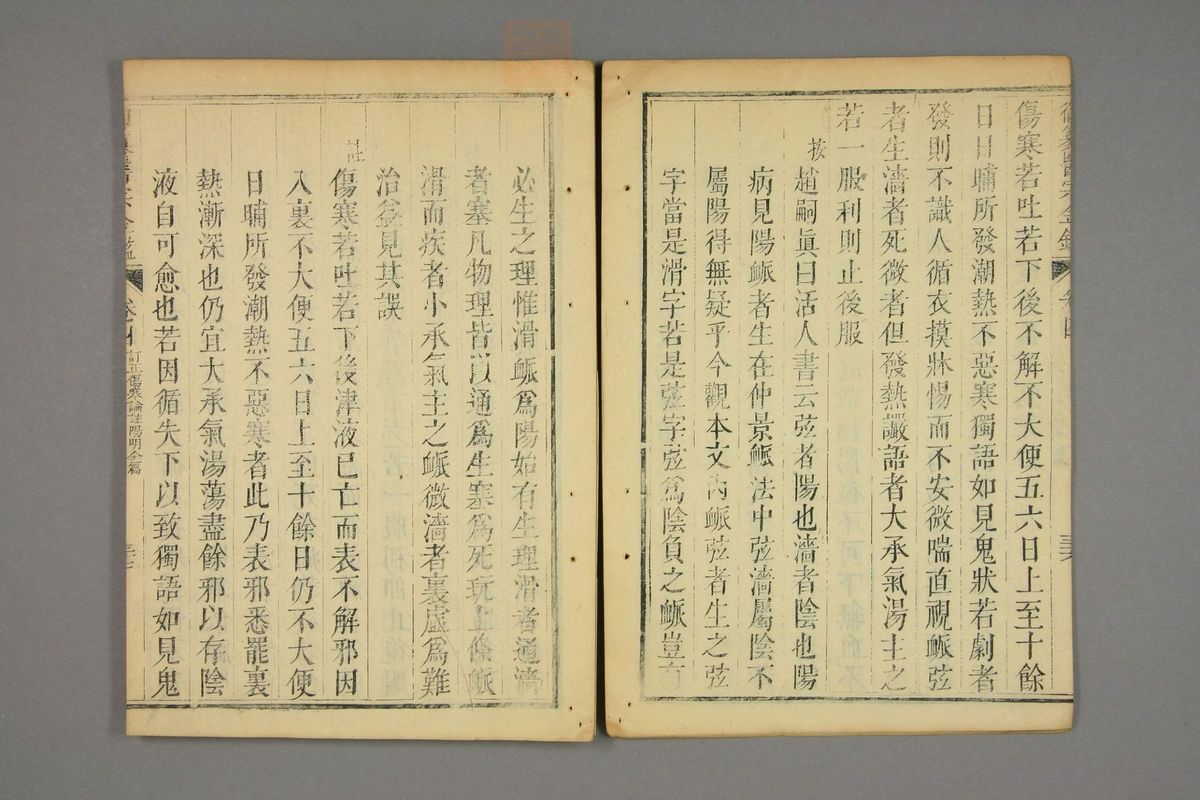 御纂醫宗金鑑 卷四 三六
傷寒若吐若下後不解不大便五六日上至十餘
日日晡所發潮熱不惡寒獨語如見鬼狀若劇者
發則不識人循衣摸牀惕而不安微喘直視䘑弦
者生濇者死微者但發熱讝語者大承氣湯主之
若一服利則止後服
按
趙嗣眞曰活人書云弦者陽也濇者陰也陽
病見陽䘑者生在仲景䘑法中弦濇屬陰不
屬陽得無疑乎今觀本文內䘑弦者生之弦
字當是滑字若是弦字弦爲陰負之䘑豈有
必生之理惟滑䘑爲陽始有生理滑者通濇
者塞凡物理皆以通爲生塞爲死玩上條䘑
滑而疾者小承氣主之䘑微濇者裏虛爲難
治益見其誤
註
傷寒若吐若下後津液已亡而表不解邪因
入裏不大便五六日上至十餘日仍不大便
日晡所發潮熱不惡寒者此乃表邪悉罷裏
熱漸深也仍宜大承氣湯蕩盡餘邪以存陰
液自可愈也若因循失下以致獨語如見鬼
卷四 訂正傷寒論註陽明全篇